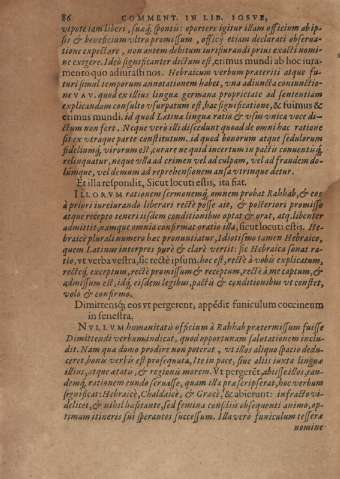 86 COMMENT. IN LIB. IOSVE,
vtpote tam liberi, suaq́; spontis: oportere igitur illum officium ab ip-
sis & beneficium vltro promissum, officij etiam declarati obserua-
tione expectare, non autem debitum iurisiurandi prius exacti nomi-
ne exigere. Ideò significanter dictum est, erimus mundi ab hoc iura-
mento quo adiurasti nos. Hebraicum verbum praeteriti atque fu-
turi simul temporum annotationem habet, vna adiuncta coniunctio-
ne VAV. quod ex illius linguæ germana proprietate ad sententiam
explicandam consulto vsurpatum est, hac significatione, & fuimus &
erimus mundi. id quod Latina lingua ratio & vsu vnica voce di-
ctum non fert. Neque verò illi discedunt quoad de omni hac ratione
sit ex vtraque parte constitutum. id quod bonorum atque sedulorum
fideliumq́; virorum est, curare ne quid incertum in pactis conuentisq́;
relinquatur, neque vlla ad crimen vel ad culpam, vel ad fraudem do-
lumque, vel demum ad reprehensionem ansa vtrinque detur.
Et illa respondit, Sicut locuti estis, ita fiat.
ILLORVM rationem sermonemq́; omnem probat Rahhab, & eos
à priori iureiurando liberari rectè posse ait, & posteriori promisso
atque recepto teneri iisdem conditionibus optat & orat, atq; libenter
admittit, namque omnia confirmat oratio illa, sicut locuti estis. He-
braicè plurali numero hoc pronuntiatur, Idiotismo tamen Hebraeo,
quem Latinus interpres purè & clarè vertit: sic Hebraica sonat ra-
tio, vt verba vestra, sic rectè ipsum, hoc est, rectè à vobis explicatum,
rectéq́; exceptum, rectè promissum & receptum, rectè à me captum, &
admissum est, idq́; eisdem legibus, pactis & conditionibus vt constet,
volo & confirmo.
Dimittensq́; eos vt pergerent, appédit funiculum coccineum
in fenestra.
NVLLVM humanitatis officium à Rahhab prætermissum fuisse
Dimittendi verbum indicat, quod opportunam salutationem inclu-
dit. Nam qua domo prodire non poterat, vt illos aliquo spatio dedu-
ceret, bonis verbis est prosequuta, Ite in pace, siue aliis iuxta linguæ
illius, atque ætatis, & regionis morem. Vt pergerét, abiisse illos, ean-
demq́; rationem eundo seruasse, quam illa præscripserat, hoc verbum
significat: Hebraicè, Chaldaicè, & Græcè, & abierunt: infracto vi-
delicet, & nihil hæsitante, sed femina consiliis obsequenti animo, op-
timum itineris sui sperantes successum. Illa verò funiculum tesseræ
nomine